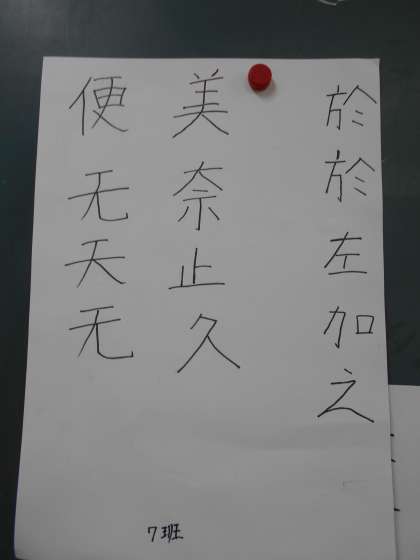 於於左加之
美奈止久
便无天无
7班